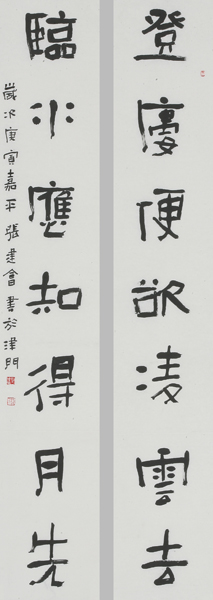 登廈便欲凌雲去
臨水應知得月先
歲次庚寅嘉平張建會書於津門